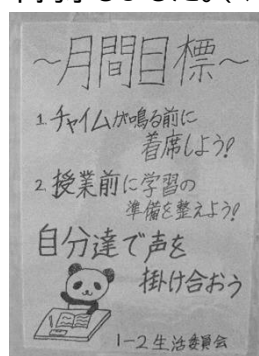 ～月間目標～
1. チャイムが鳴る前に
着席しよう!
2. 授業前に学習の
準備を整えよう!
自分達で声を
掛け合おう
1-2 生活委員会